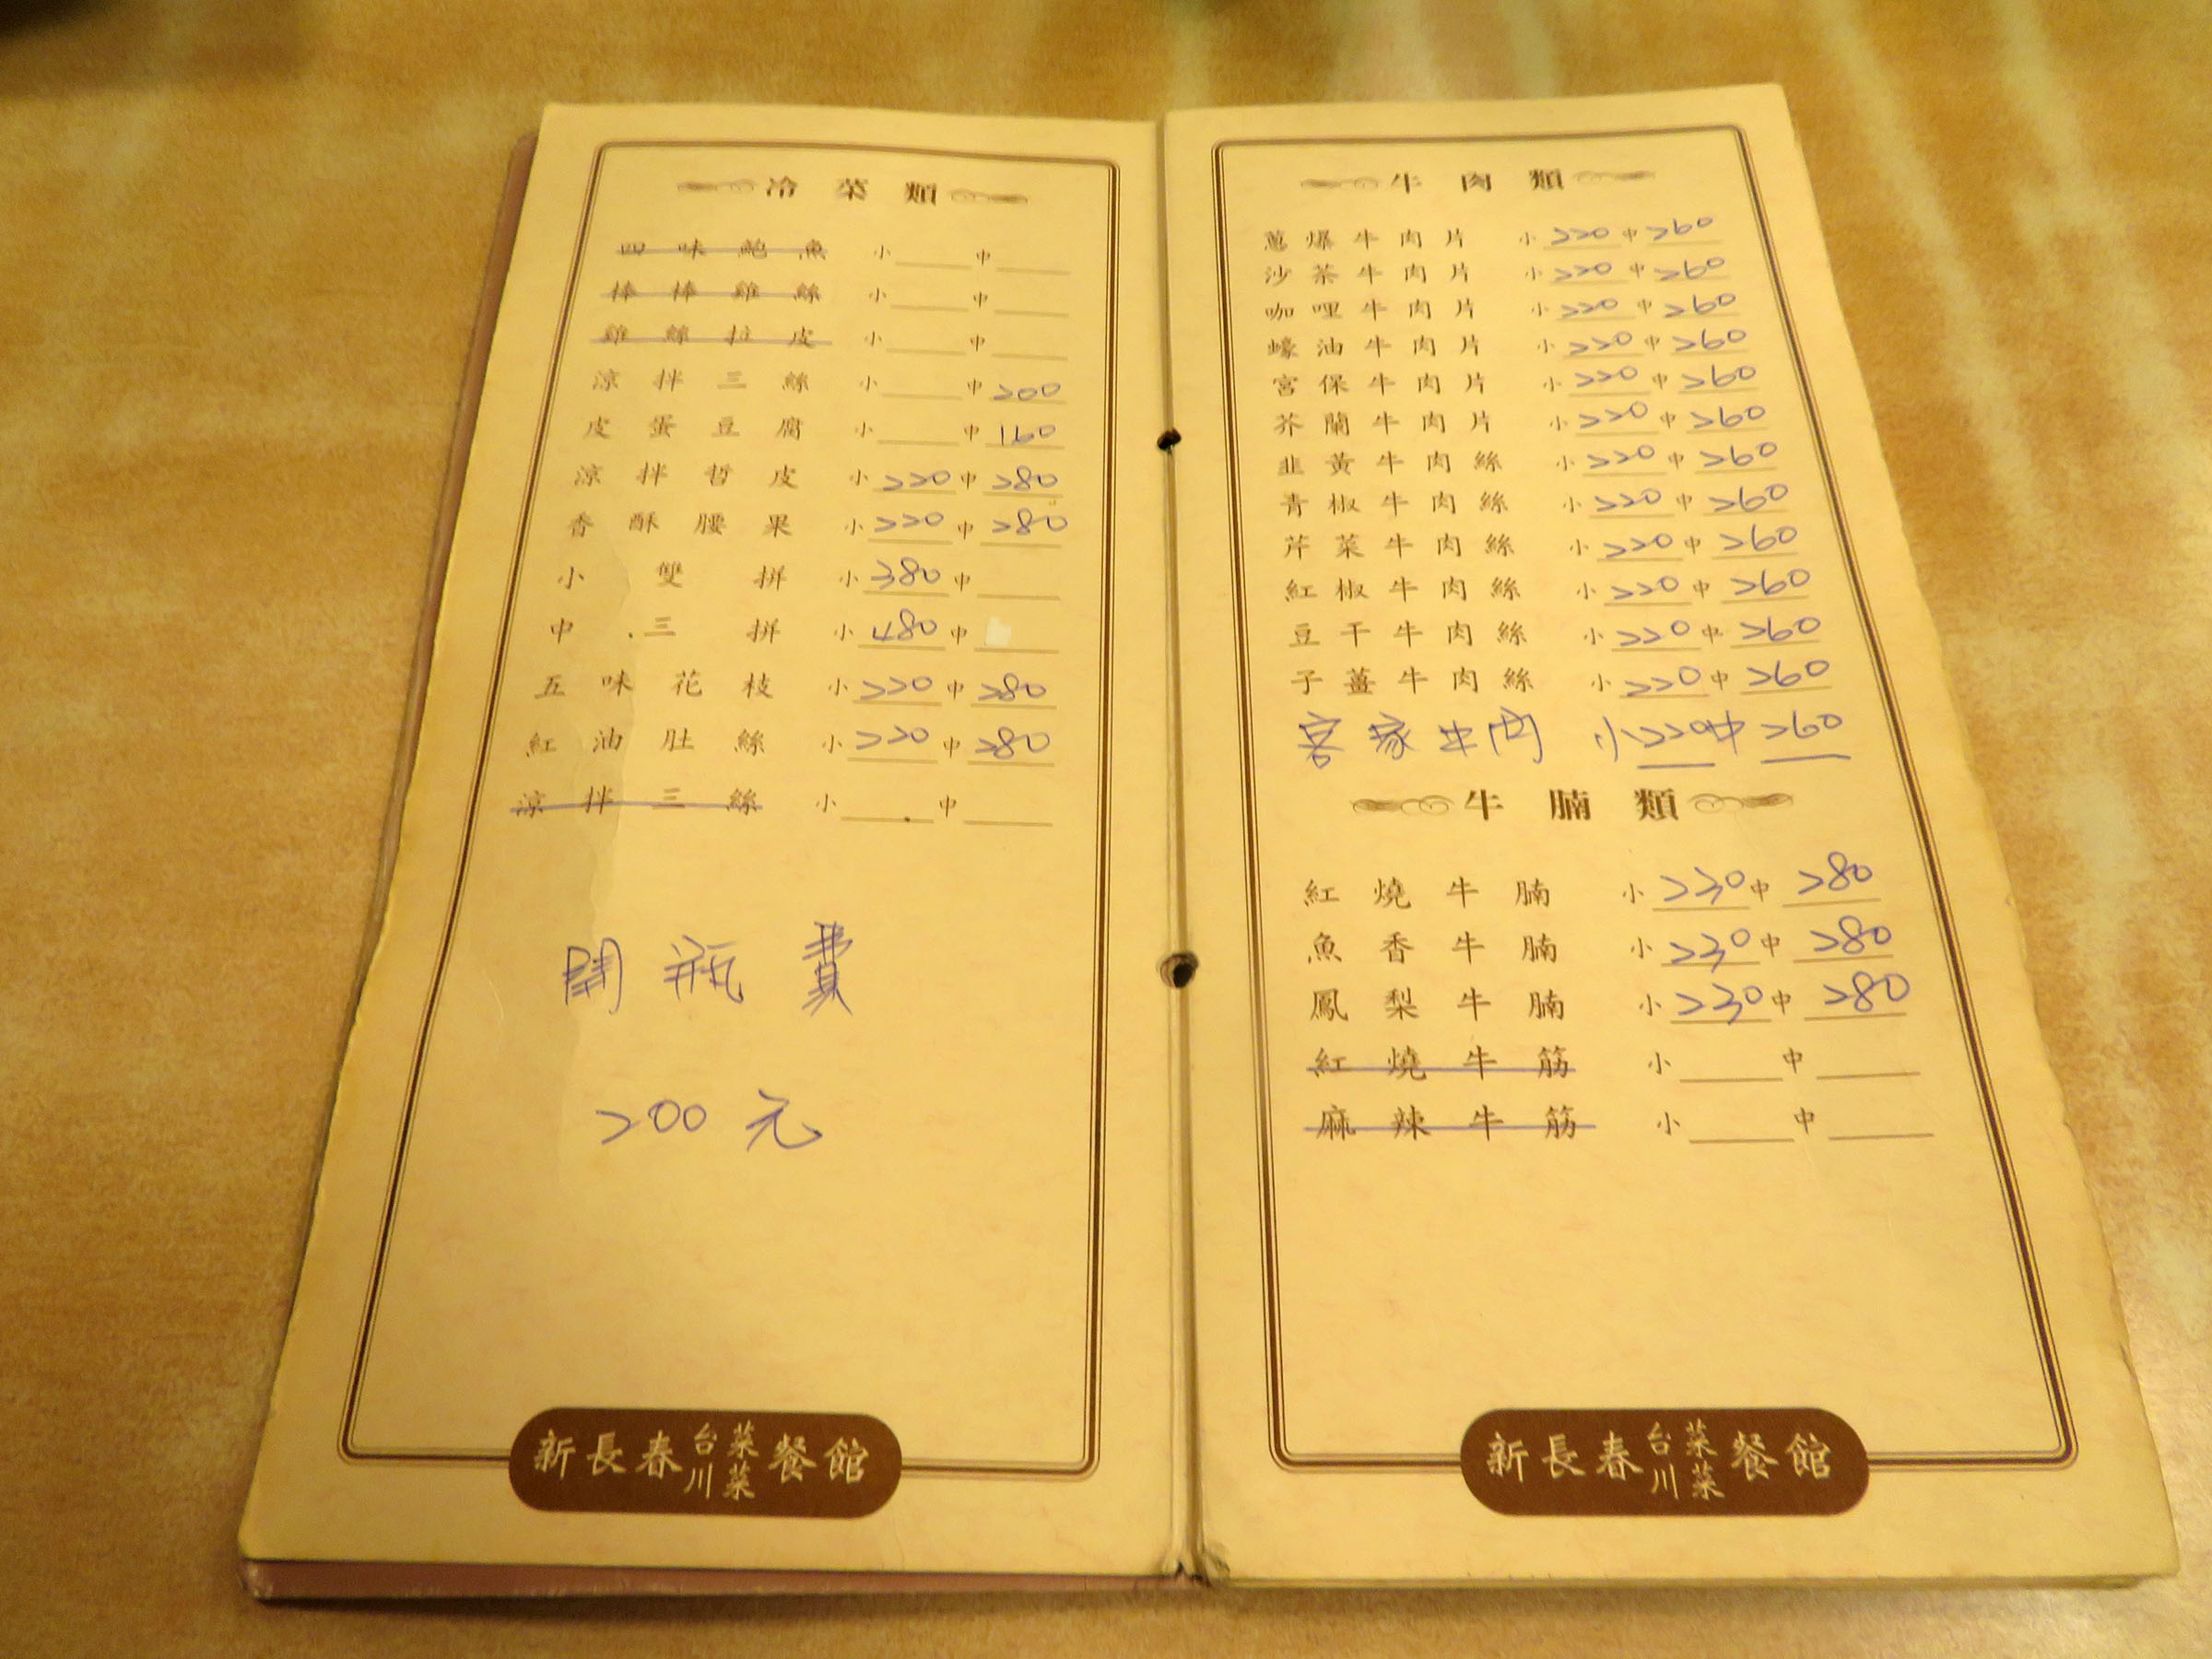 冷菜類
四味鮑魚 小 中
棒棒雞絲 小 中
雞絲拉皮 小 中
涼拌三絲 小 中 200
皮蛋豆腐 小 中 160
涼拌哲皮 小 220 中 280
香酥腰果 小 220 中 280
小雙拼 小 380 中
中三拼 小 480 中
五味花枝 小 220 中 280
紅油肚絲 小 220 中 280
涼拌三絲 小 中
開瓶費
200元
新長春台菜川菜餐館
牛肉類
蔥爆牛肉片 小 220 中 260
沙茶牛肉片 小 220 中 260
咖哩牛肉片 小 220 中 260
蠔油牛肉片 小 220 中 260
宮保牛肉片 小 220 中 260
芥蘭牛肉片 小 220 中 260
韭黃牛肉絲 小 220 中 260
青椒牛肉絲 小 220 中 260
芹菜牛肉絲 小 220 中 260
紅椒牛肉絲 小 220 中 260
豆干牛肉絲 小 220 中 260
子薑牛肉絲 小 220 中 260
客家牛肉 小 220 中 260
牛腩類
紅燒牛腩 小 230 中 280
魚香牛腩 小 230 中 280
鳳梨牛腩 小 230 中 280
紅燒牛筋 小 中
麻辣牛筋 小 中
新長春台菜川菜餐館